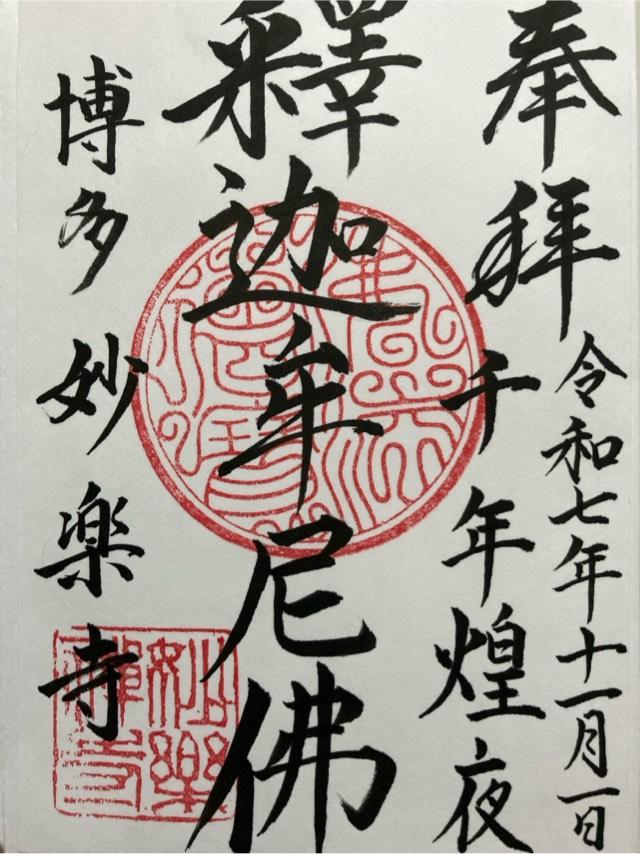 奉拝
令和七年十一月一日
千年煌夜
釋迦牟尼佛
博多 妙楽寺